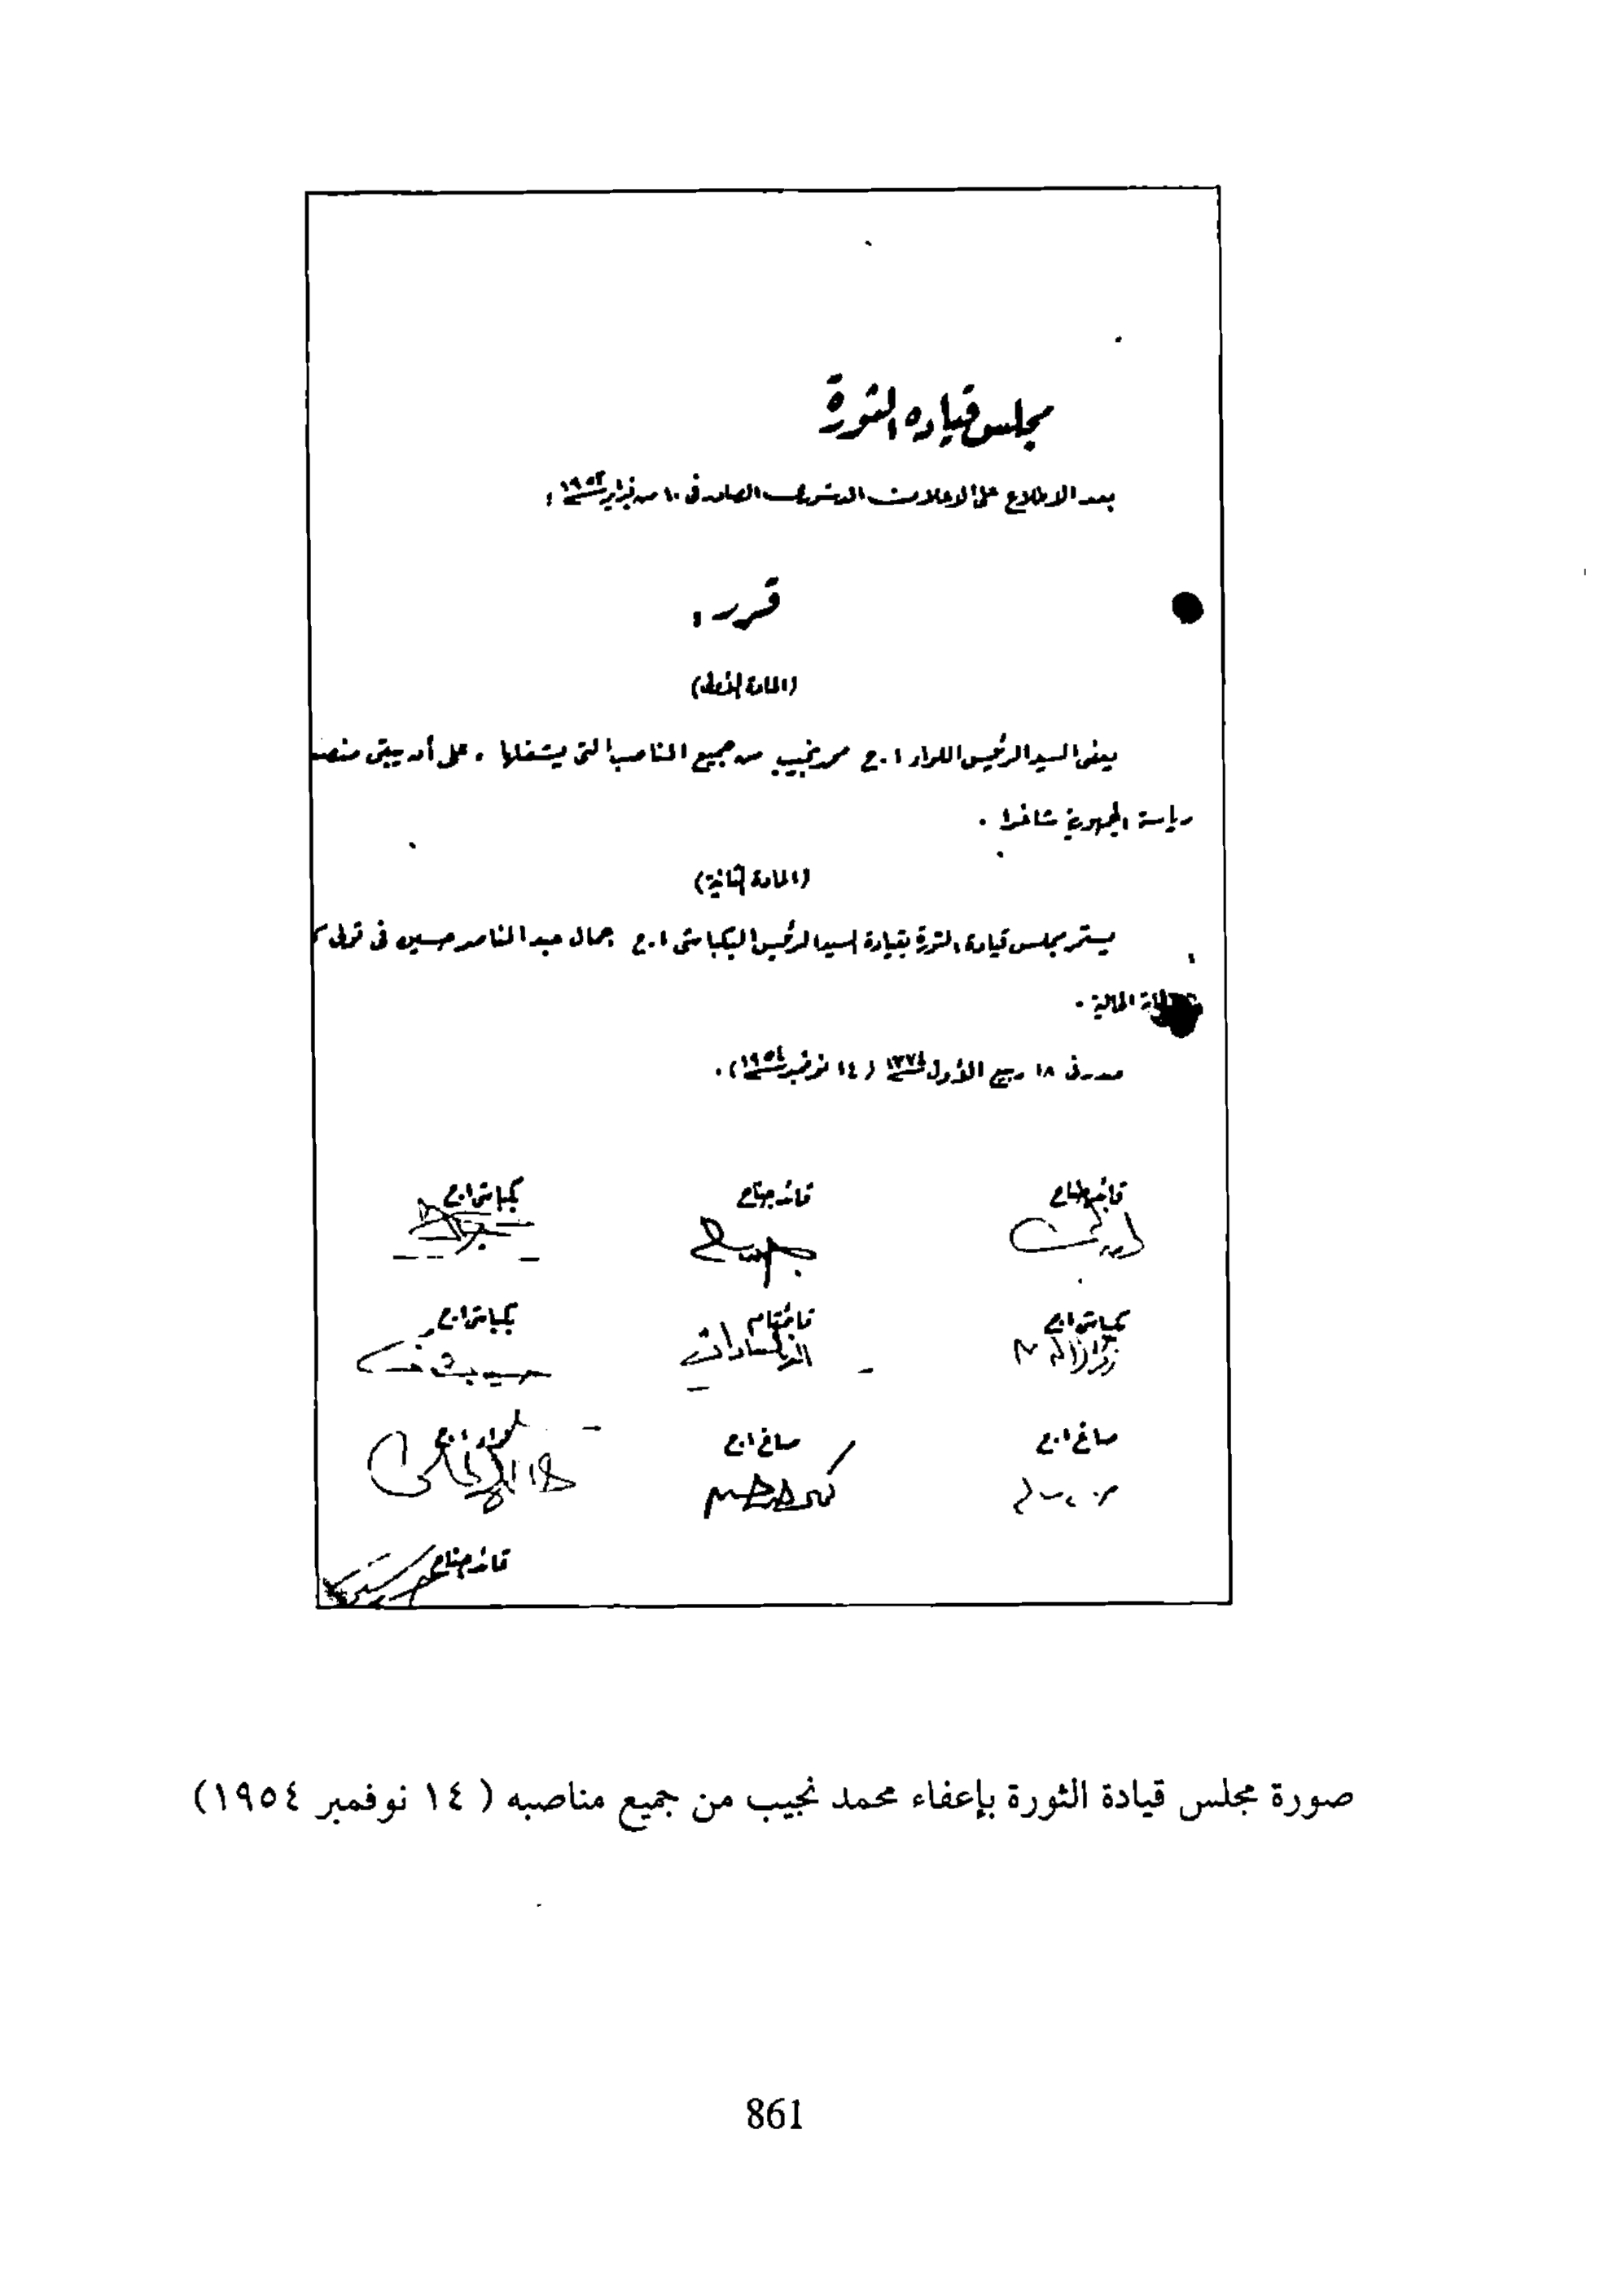 مجلس قياده الثورة
بعد الاطلاع على الاعلان الدستوري الصادر فى ١٠ من فبراير سنة ١٩٥٣ :
قرر :
(المادة الأولى)
يعفى السيد الرئيس اللواء ا.ح محمد نجيب من جميع المناصب التى يشغلها ، على أن يبقى منصب
رياسة الجمهورية شاغرا .
(المادة الثانية)
يستمر مجلس قيادة الثورة بقيادة السيد الرئيس البكباشى ا.ح جمال عبد الناصر حسين فى تولى
الحالية .
صدر فى ١٨ ربيع الأول سنة ١٣٧٤ (١٤ نوفمبر سنة ١٩٥٤) .
قائد جناح قائد جناح بكباشى ا.ح
بكباشى ا.ح قائمقام بكباشى ا.ح
زكريا أنور السادات حسين
صاغ ا.ح صاغ ا.ح لواء ا.ح
قائد جناح
صورة مجلس قيادة الثورة بإعفاء محمد نجيب من جميع مناصبه ( ١٤ نوفمبر ١٩٥٤)
861